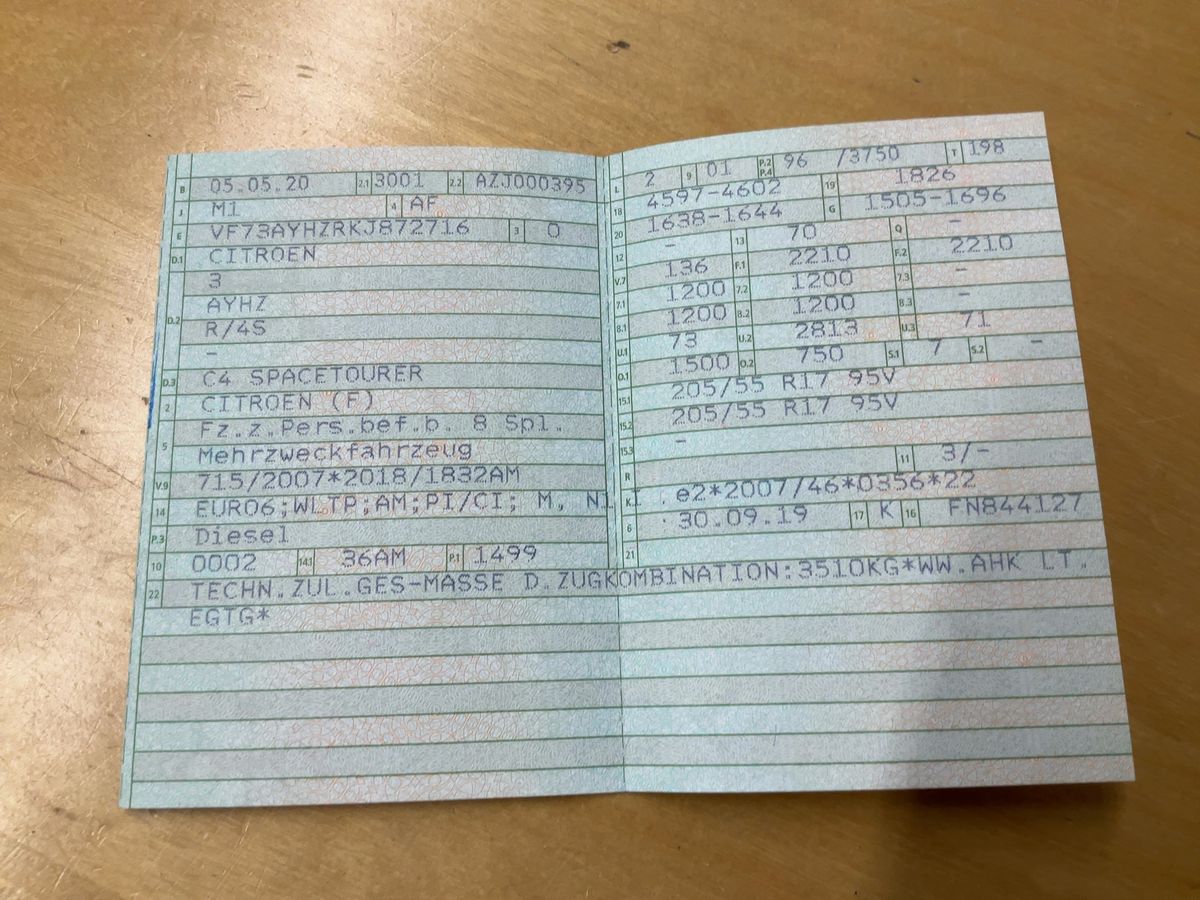 B 05.05.20 2.1 3001 2.2 AZJ000395
J M1 4 AF
E VF73AYHZRKJ872716 3 0
D.1 CITROEN
3
AYHZ
D.2 R/4S
-
D.3 C4 SPACETOURER
2 CITROEN (F)
Fz.z.Pers.bef.b. 8 Spl.
5 Mehrzweckfahrzeug
V.9 715/2007*2018/1832AM
14 EURO6;WLTP;AM;PI/CI; M, N1 I
P.3 Diesel
10 0002 14.1 36AM P.1 1499
L 2 9 01 P.2 P.4 96 /3750 T 198
18 4597-4602 19 1826
20 1638-1644 G 1505-1696
12 - 13 70 Q -
V.7 136 F.1 2210 F.2 2210
7.1 1200 7.2 1200 7.3 -
8.1 1200 8.2 1200 8.3 -
U.1 73 U.2 2813 U.3 71
O.1 1500 O.2 750 S.1 7 S.2 -
15.1 205/55 R17 95V
15.2 205/55 R17 95V
15.3 -
R 11 3/-
K e2*2007/46*0356*22
6 30.09.19 17 K 16 FN844127
21
22 TECHN.ZUL.GES-MASSE D.ZUGKOMBINATION:3510KG*WW.AHK LT.
EGTG*